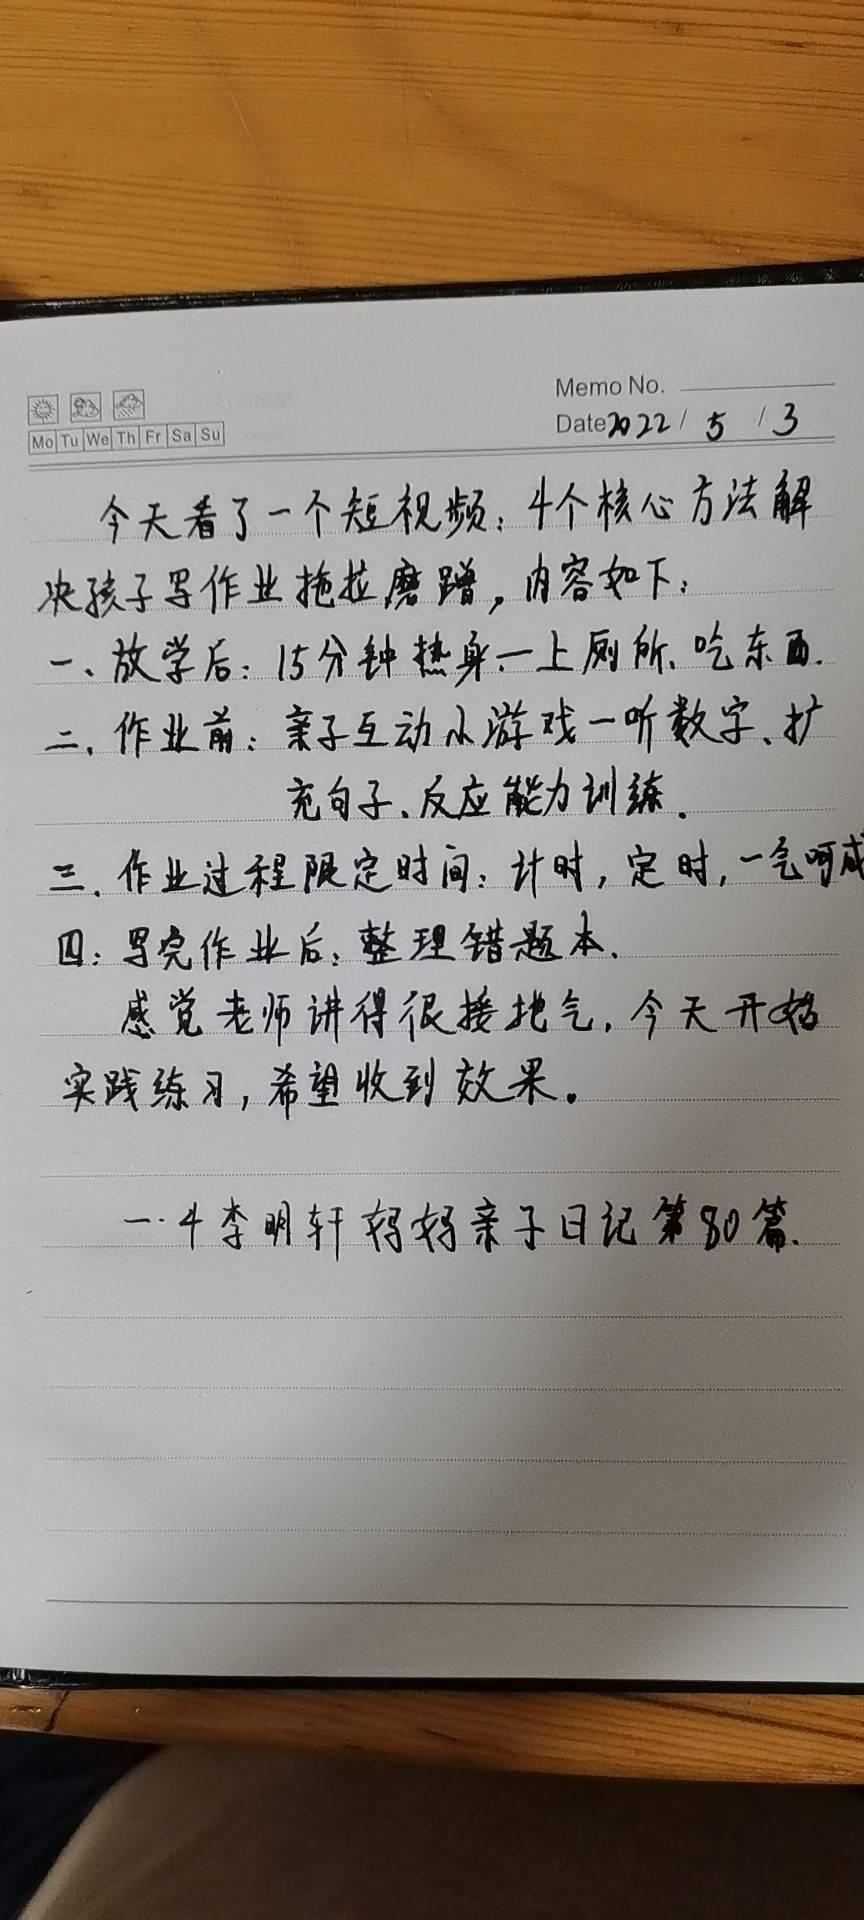 Memo No.
Mo Tu We Th Fr Sa Su
Date 2022 / 5 / 3
今天看了一个短视频：4个核心方法解
决孩子写作业拖拉磨蹭，内容如下：
一、放学后：15分钟热身—上厕所、吃东西.
二、作业前：亲子互动小游戏—听数字、扩
充句子、反应能力训练.
三、作业过程限定时间：计时，定时，一气呵成
四：写完作业后：整理错题本.
感觉老师讲得很接地气，今天开始
实践练习，希望收到效果。
一.4李明轩妈妈亲子日记第80篇.